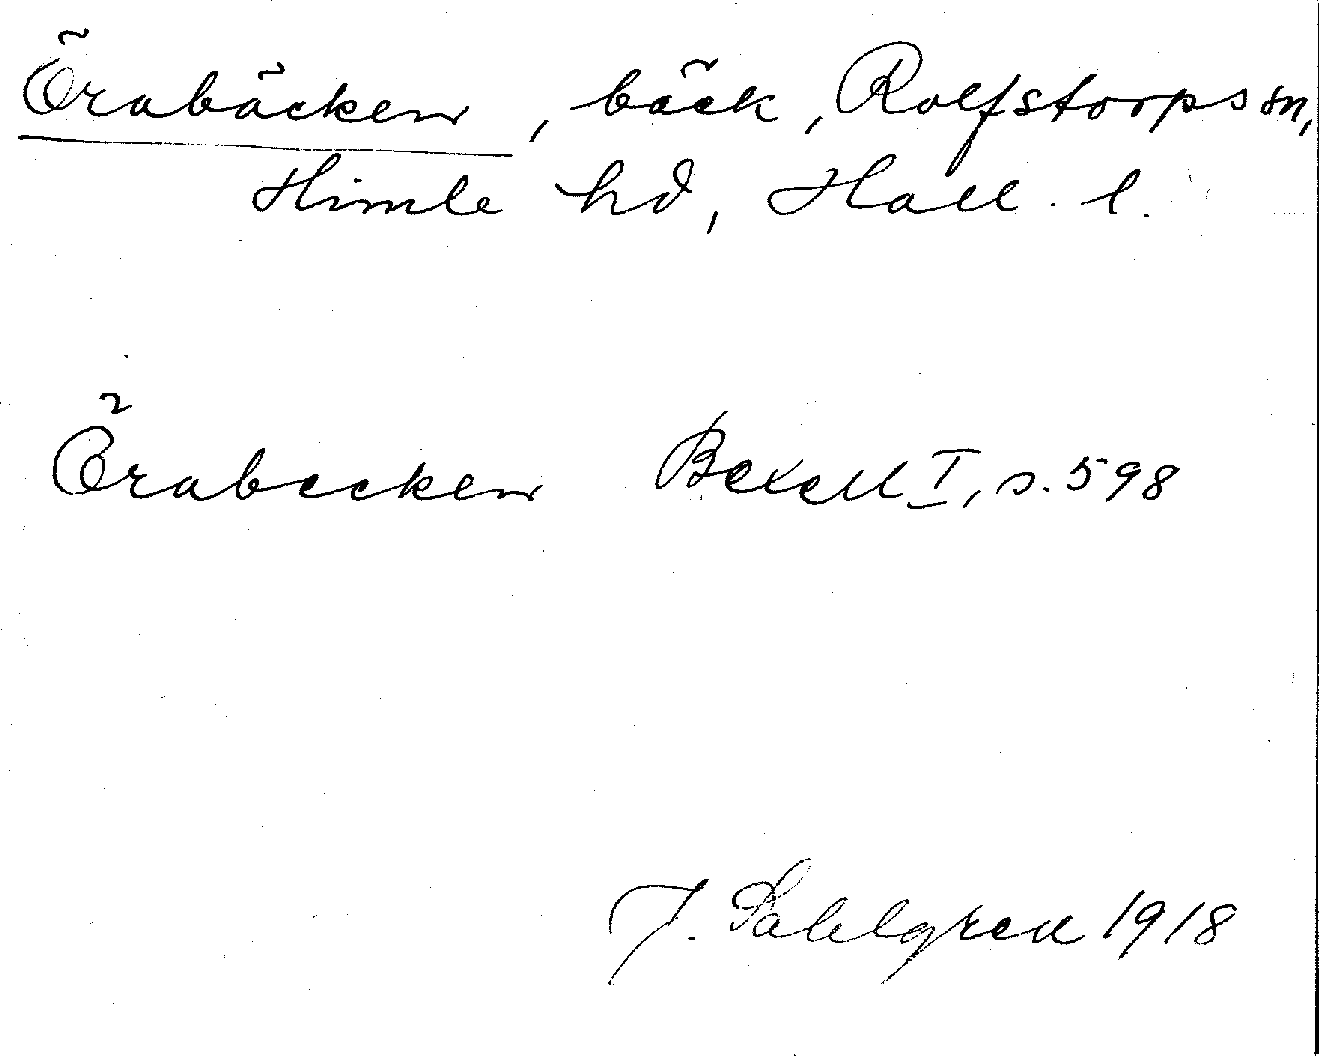 Örabäcken, bäck, Rolfstorps sn,
Himle hd, Hall. l.
Örabecken Bexell I, s. 598
J. Sahlgren 1918